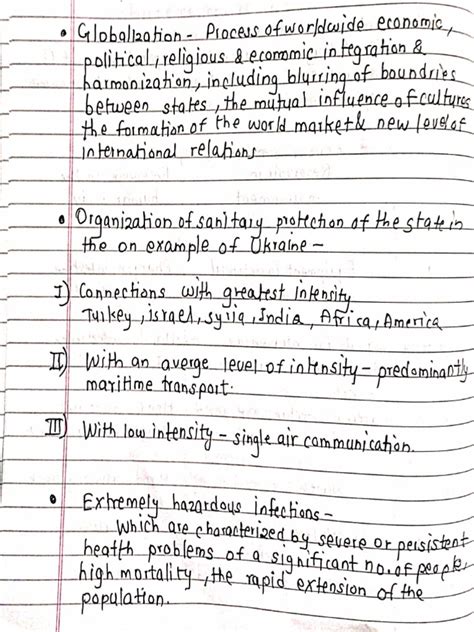 • Globalization - Process of worldwide economic,
political, religious & economic integration &
harmonization, including blurring of boundries
between states, the mutual influence of cultures
the formation of the world market & new level of
international relations
• Organization of sanitary protection of the state in
the on example of Ukraine –
I) Connections with greatest intensity
Turkey, israel, syria, India, Africa, America
II) With an averge level of intensity – predominantly
maritime transport.
III) With low intensity – single air communication.
• Extremely hazardous infections –
Which are characterized by severe or persistent
health problems of a significant no. of people,
high mortality, the rapid extension of the
population.